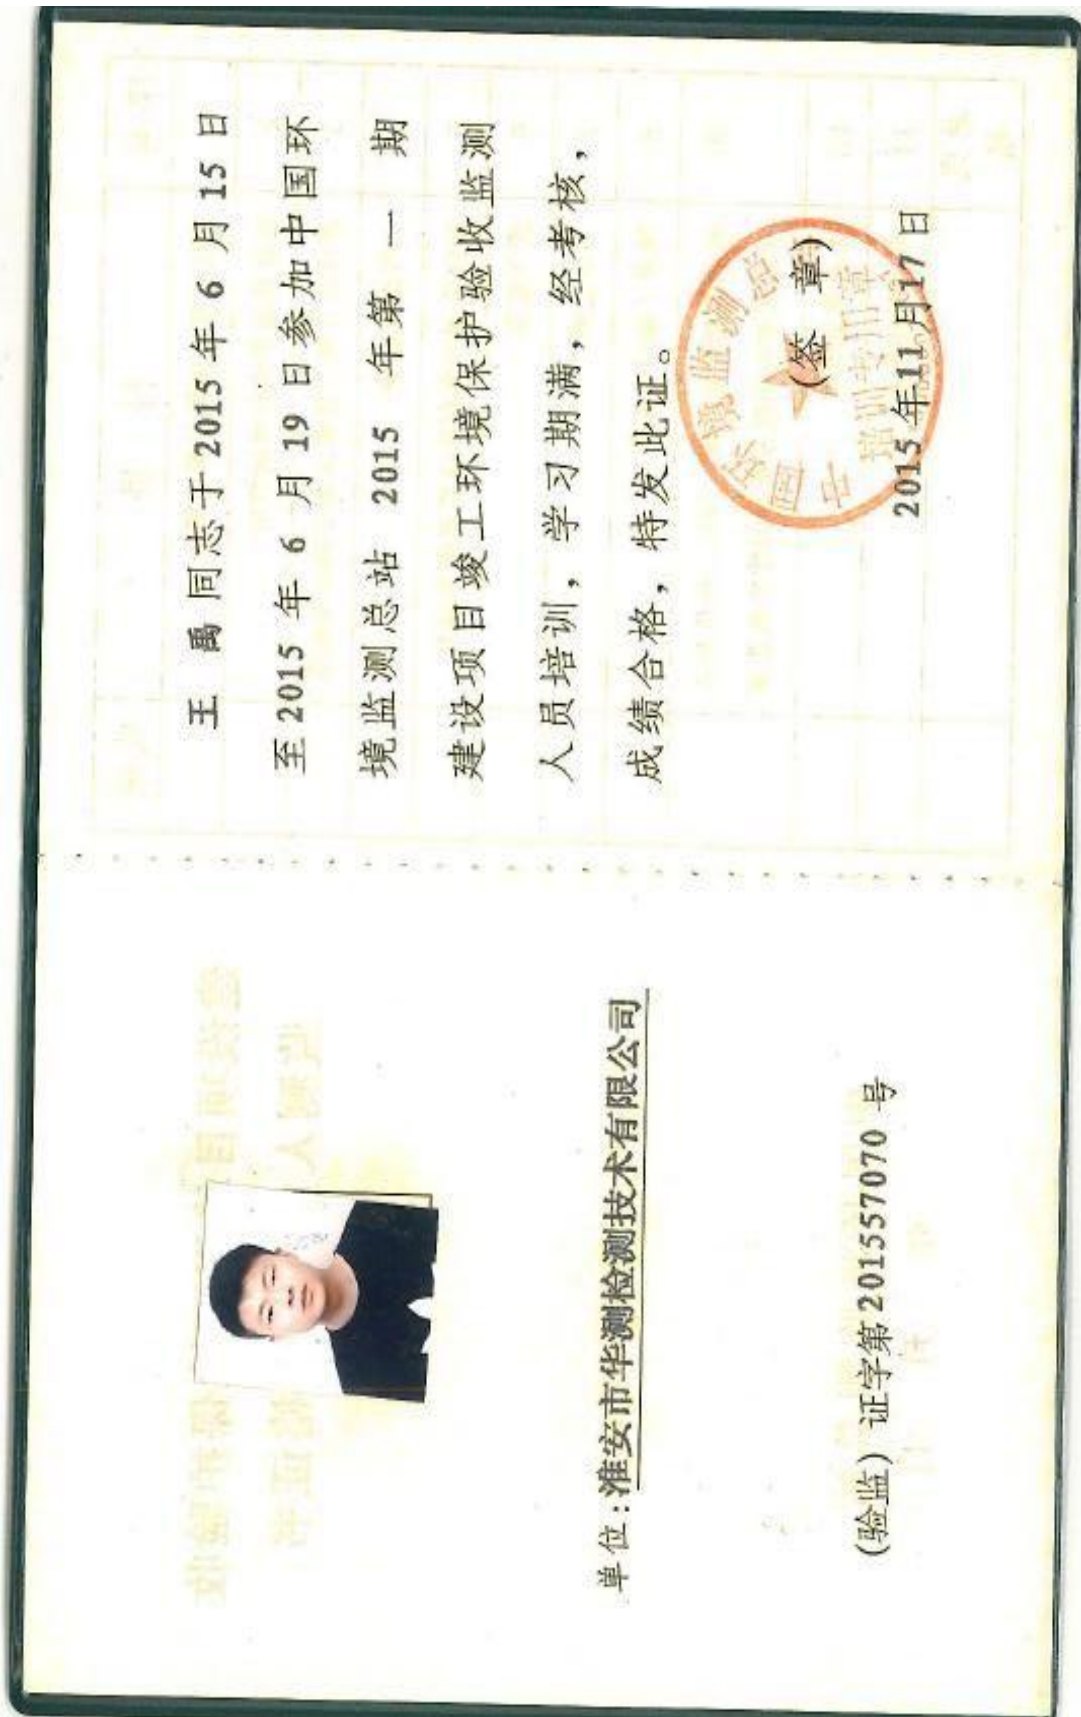 单位：淮安市华测检测技术有限公司
(验监) 证字第 201557070 号
王 禹 同志于 2015 年 6 月 15 日
至 2015 年 6 月 19 日参加中国环
境监测总站 2015 年第 一 期
建设项目竣工环境保护验收监测
人员培训，学习期满，经考核，
成绩合格，特发此证。
中国环境监测总
培训专用章
(签 章)
2015 年 11 月 17 日